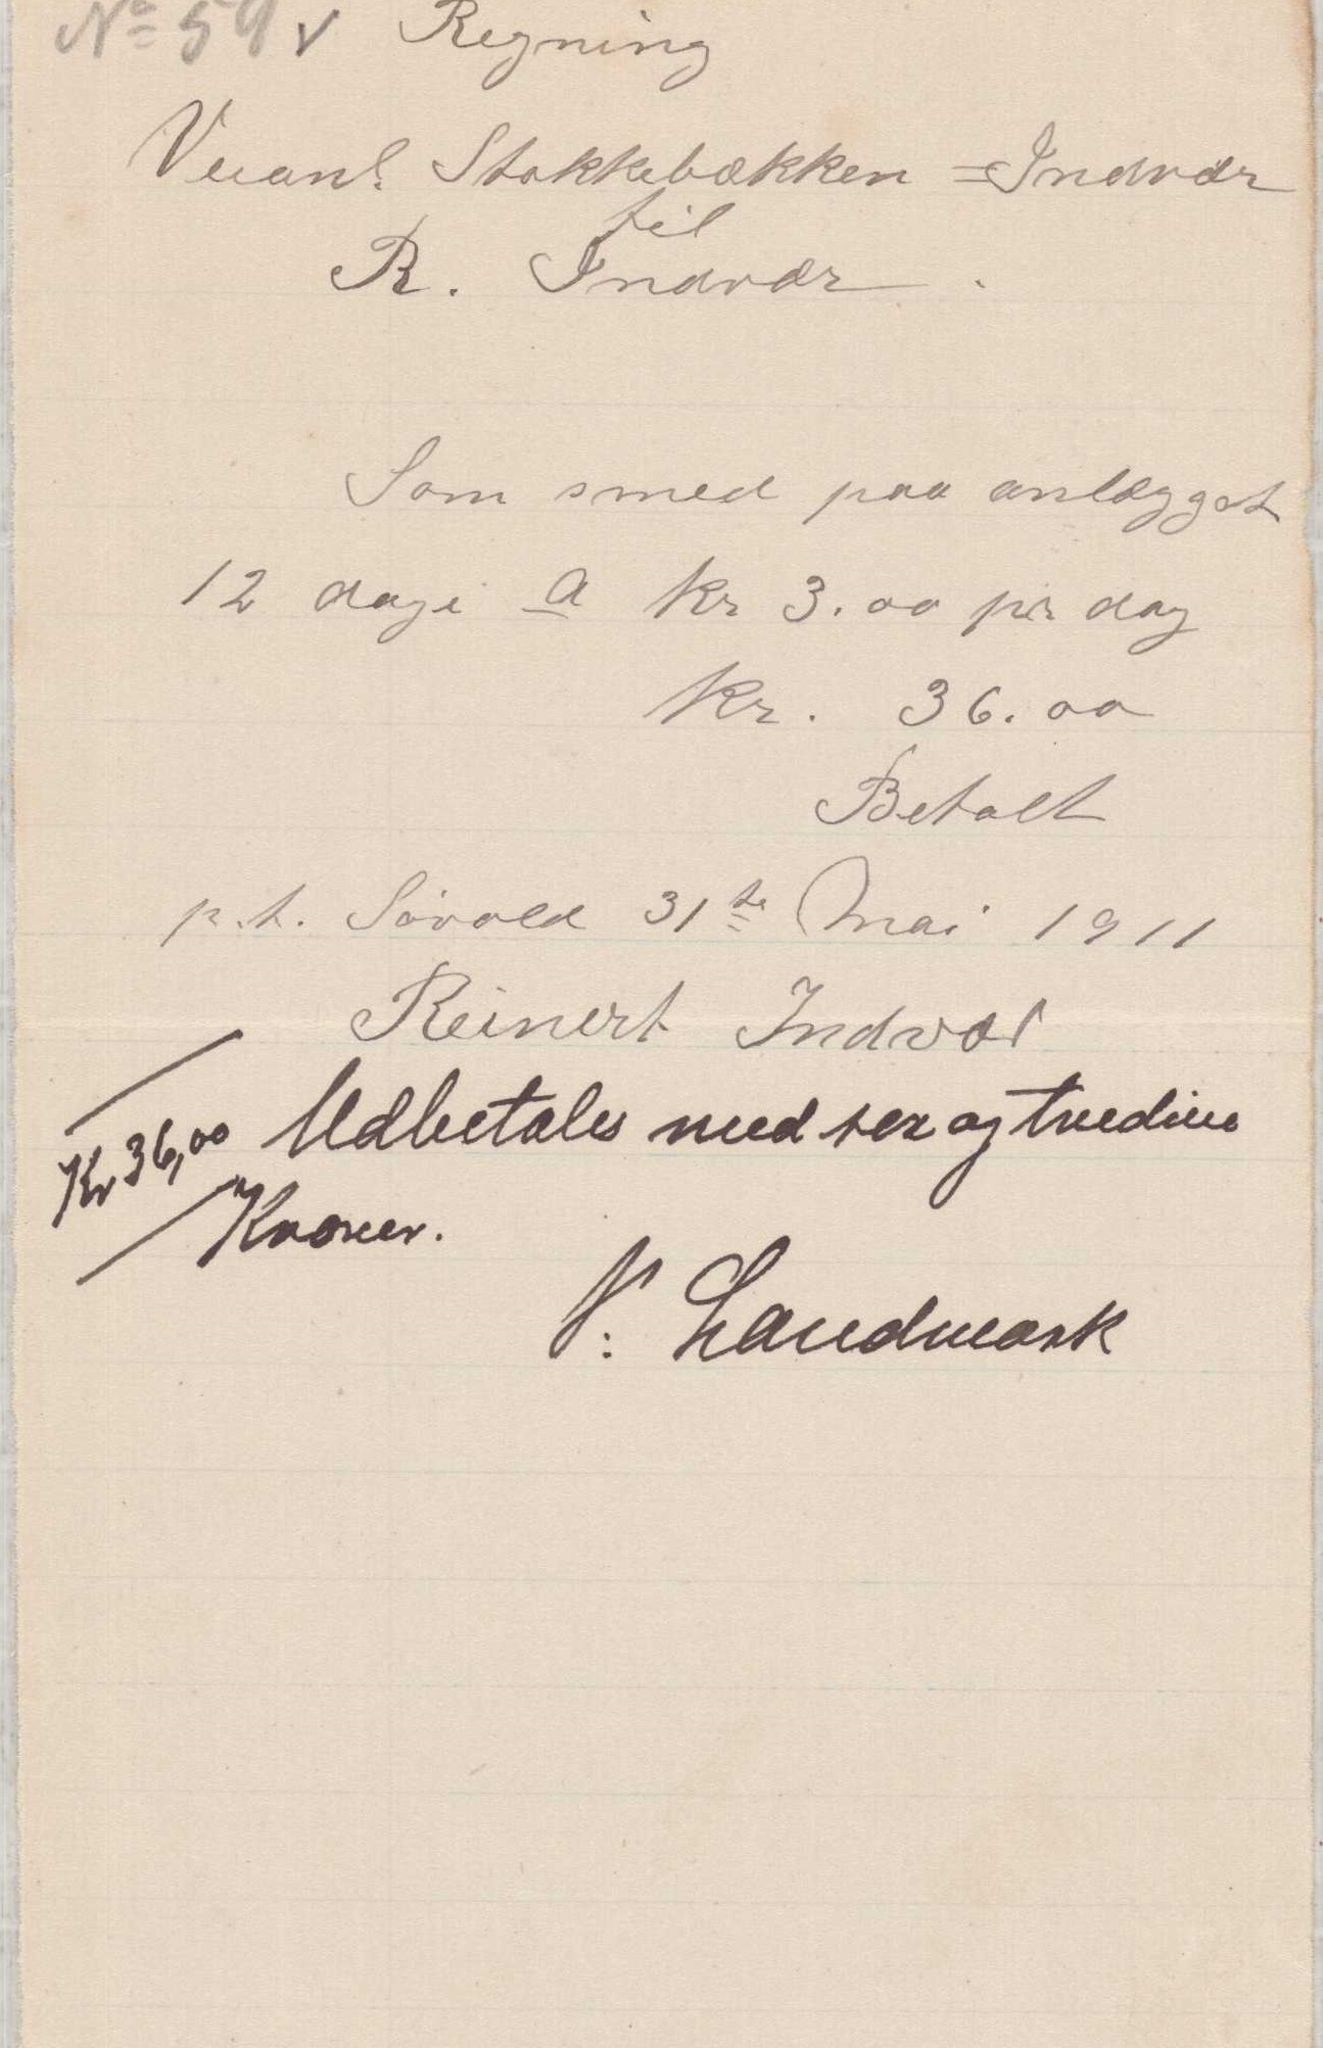 No 59 v Regning
Veianl. Stokkebækken = Indvær
til
R. Indvær.
Som smed paa anlægget
12 dage a kr 3.00 pr dag
Kr. 36.00
Betalt
p.t. Søvold 31te Mai 1911
Reinert Indvær
Kr 36,00 Udbetales med sex og tredive
Kroner.
N. Landmark